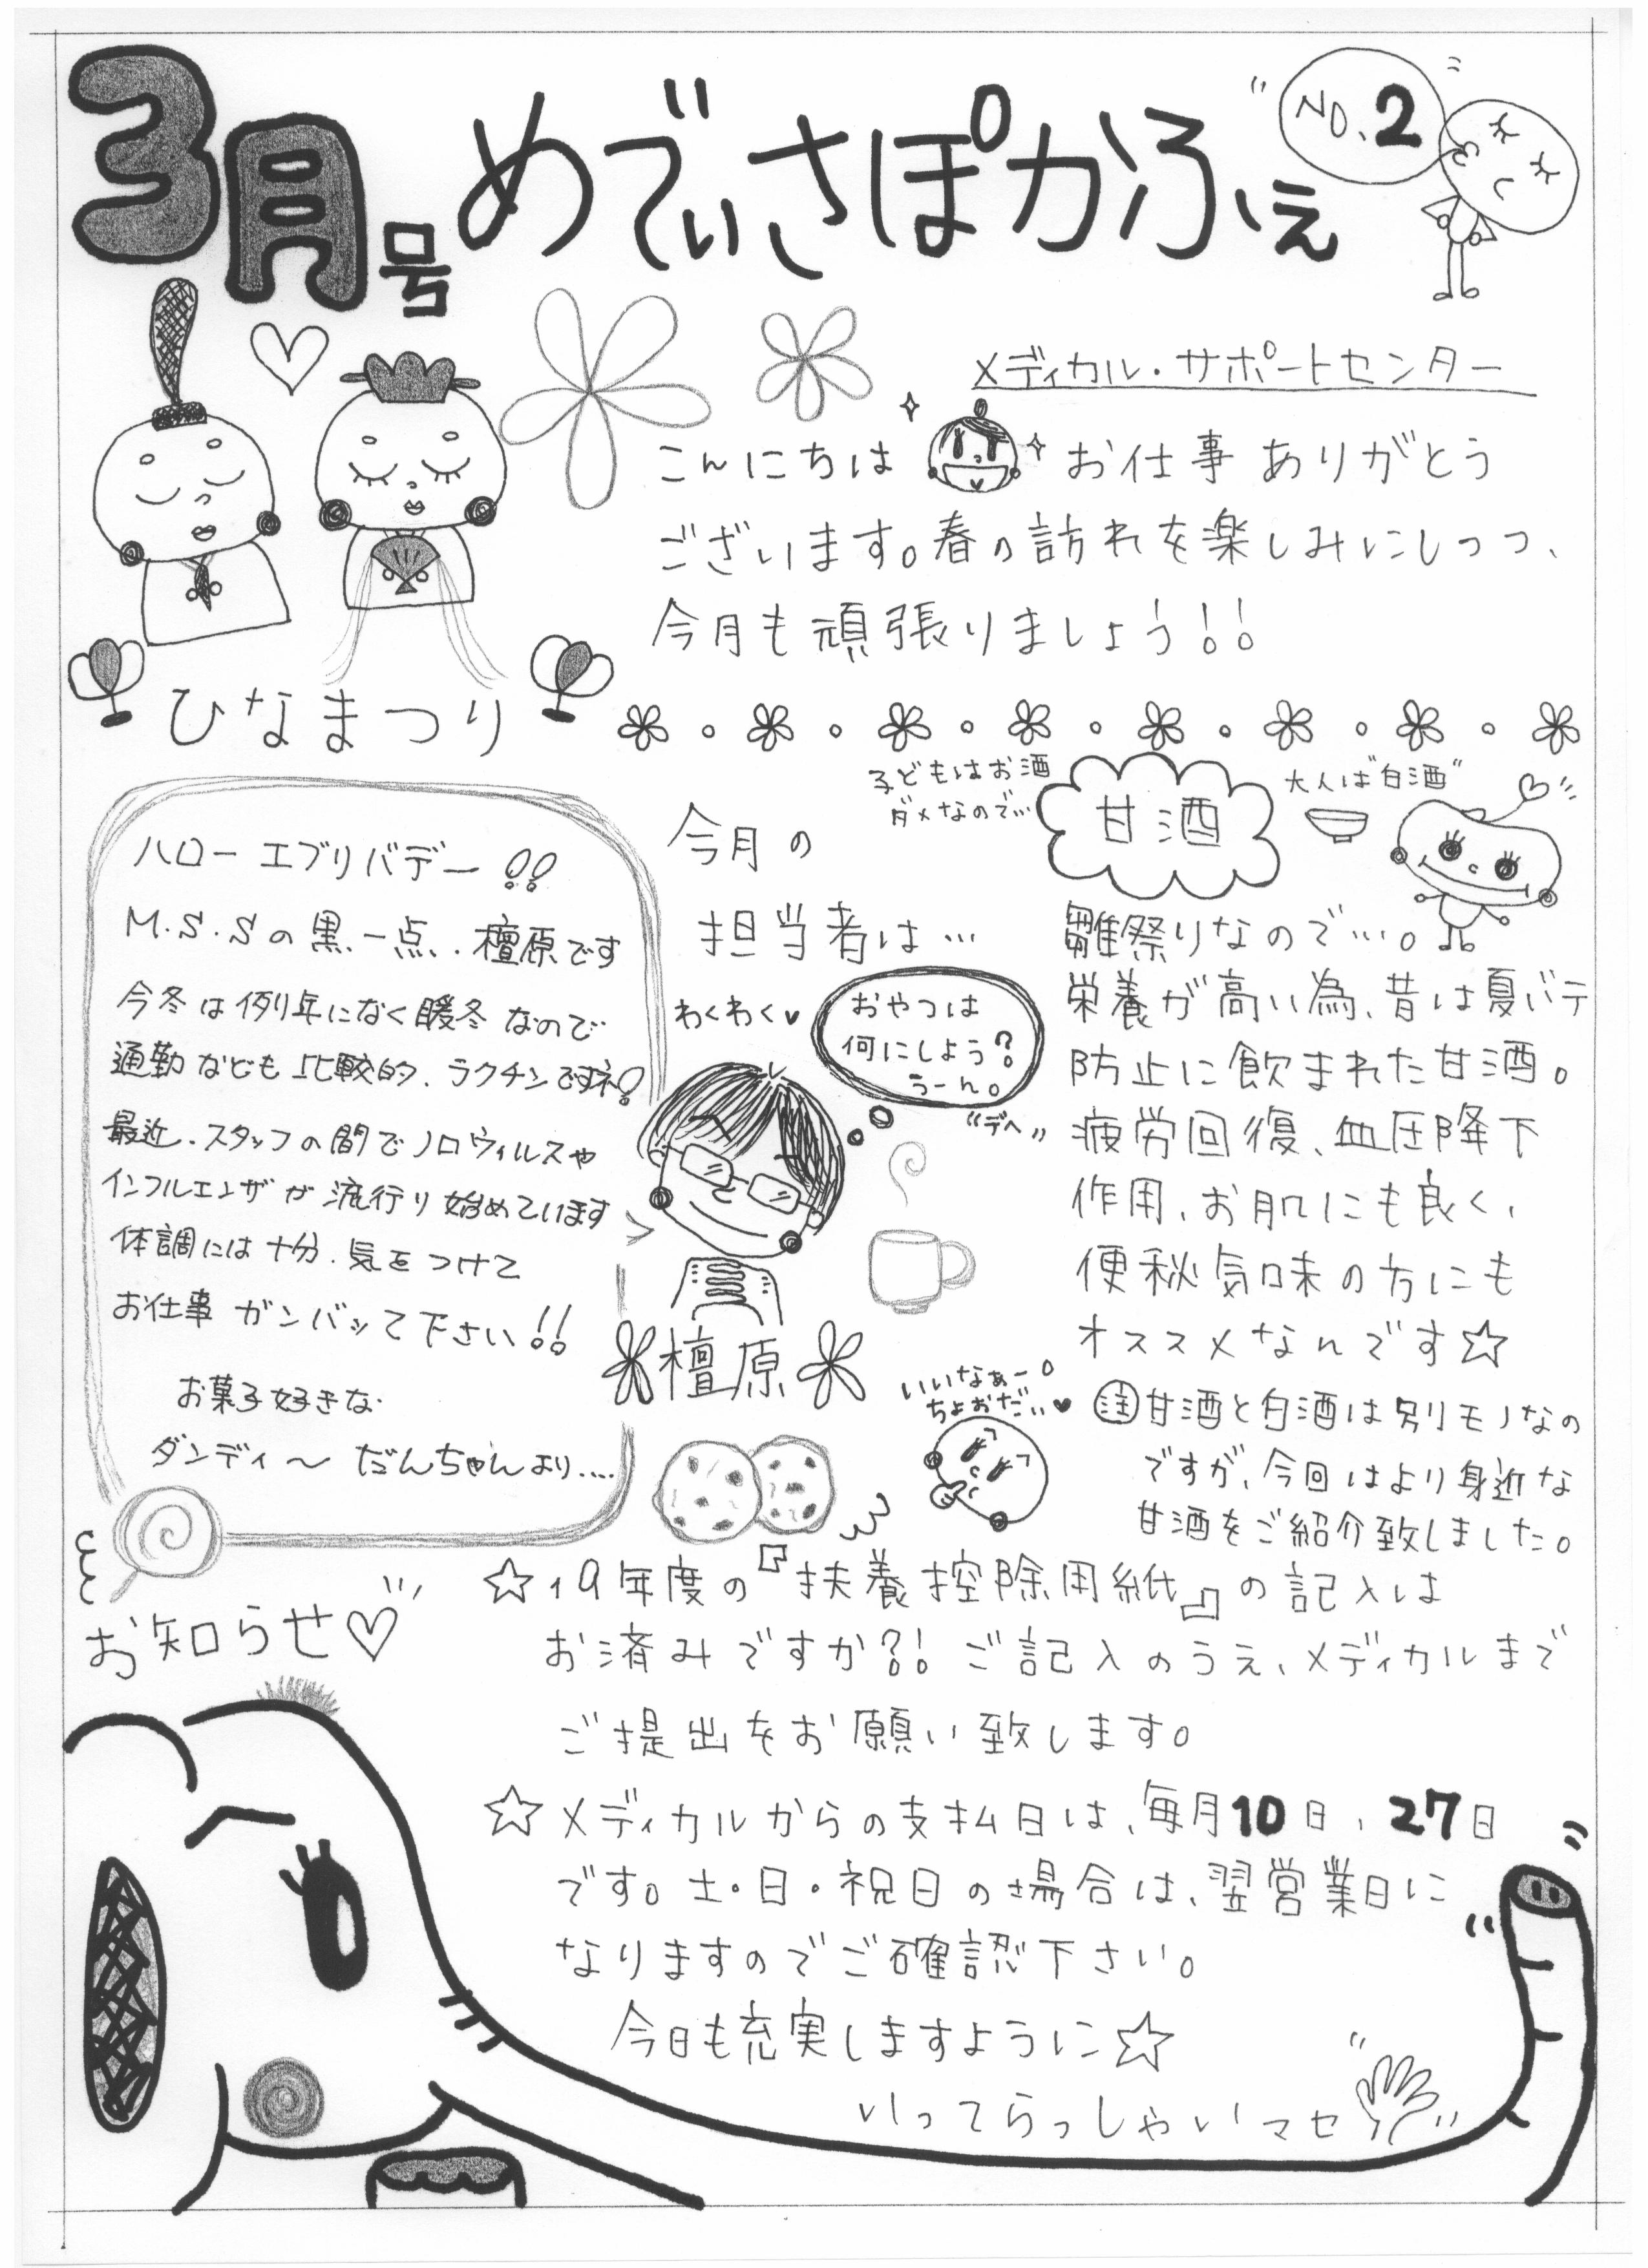 3月号 めでぃさぽかふぇ
NO.2
メディカル・サポートセンター
こんにちは お仕事 ありがとう
ございます。春の訪れを楽しみにしつつ、
今月も頑張りましょう!!
ひなまつり
ハロー エブリバデー!!
M.S.Sの黒一点、檀原です
今冬は例年になく暖冬なので
通勤なども比較的、ラクチンですネ!
最近、スタッフの間でノロウィルスや
インフルエンザが流行り始めています
体調には十分、気をつけて
お仕事 ガンバッて下さい!!
お菓子好きな
ダンディ〜 だんちゃんより....
今月の
担当者は…
わくわく♥
おやつは
何にしよう?
うーん。
"デヘ"
檀原
いいなぁー。
ちょおだぃ♥
子どもはお酒
ダメなので…
甘酒
大人は"白酒"
雛祭りなので…。
栄養が高い為、昔は夏バテ
防止に飲まれた甘酒。
疲労回復、血圧降下
作用、お肌にも良く、
便秘気味の方にも
オススメなんです☆
注 甘酒と白酒は別モノなの
ですが、今回はより身近な
甘酒をご紹介致しました。
お知らせ♡
☆19年度の『扶養控除用紙』の記入は
お済みですか?! ご記入のうえ、メディカルまで
ご提出をお願い致します。
☆メディカルからの支払日は、毎月10日、27日
です。土・日・祝日の場合は、翌営業日に
なりますのでご確認下さい。
今日も充実しますように☆
いってらっしゃいマセ